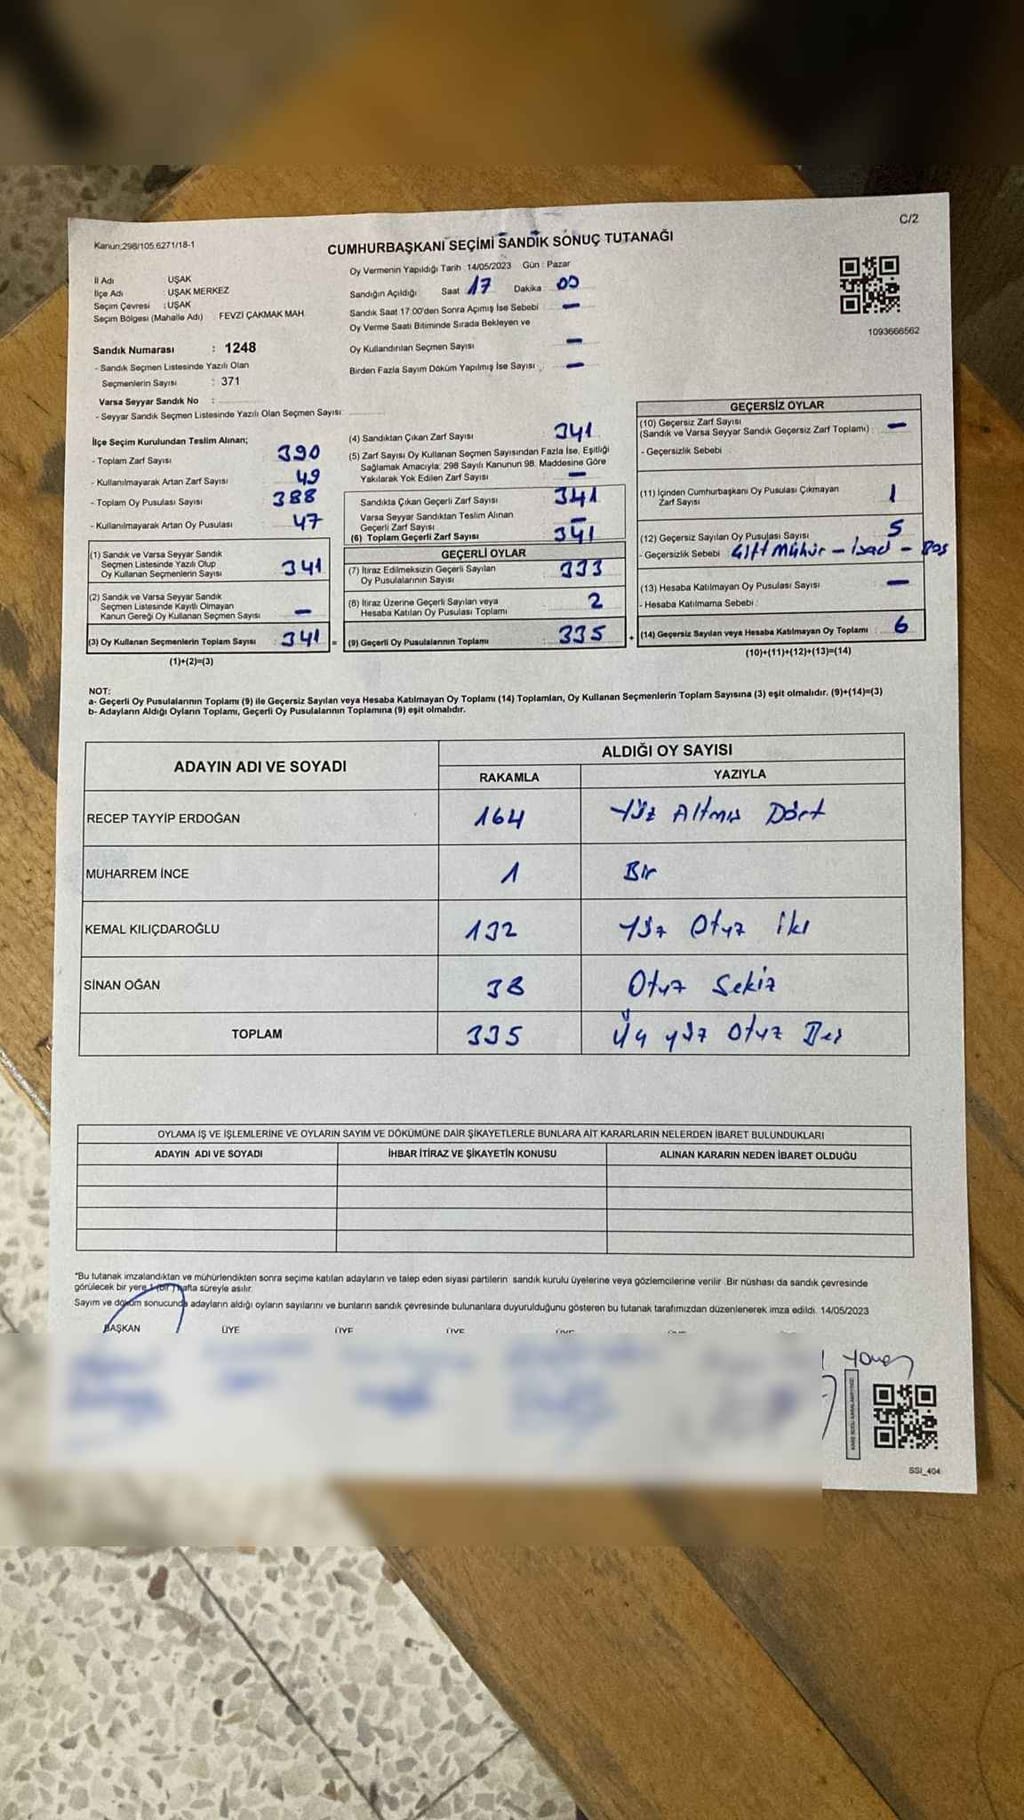 C/2
Kanun:298/105,6271/18-1
CUMHURBAŞKANI SEÇİMİ SANDIK SONUÇ TUTANAĞI
Oy Vermenin Yapıldığı Tarih :14/05/2023 Gün : Pazar
İl Adı UŞAK
İlçe Adı UŞAK MERKEZ
Seçim Çevresi : UŞAK
Seçim Bölgesi (Mahalle Adı) FEVZİ ÇAKMAK MAH.
Sandığın Açıldığı Saat 17 Dakika 00
Sandık Saat 17:00'den Sonra Açımış İse Sebebi —
Oy Verme Saati Bitiminde Sırada Bekleyen ve
Oy Kullandırılan Seçmen Sayısı —
Birden Fazla Sayım Döküm Yapılmış İse Sayısı : —
1093666562
Sandık Numarası : 1248
- Sandık Seçmen Listesinde Yazılı Olan
Seçmenlerin Sayısı : 371
Varsa Seyyar Sandık No :
- Seyyar Sandık Seçmen Listesinde Yazılı Olan Seçmen Sayısı:
İlçe Seçim Kurulundan Teslim Alınan;
- Toplam Zarf Sayısı 390
- Kullanılmayarak Artan Zarf Sayısı 49
- Toplam Oy Pusulası Sayısı 388
- Kullanılmayarak Artan Oy Pusulası 47
(1) Sandık ve Varsa Seyyar Sandık
Seçmen Listesinde Yazılı Olup
Oy Kullanan Seçmenlerin Sayısı 341
(2) Sandık ve Varsa Seyyar Sandık
Seçmen Listesinde Kayıtlı Olmayan
Kanun Gereği Oy Kullanan Seçmen Sayısı —
(3) Oy Kullanan Seçmenlerin Toplam Sayısı 341 =
(1)+(2)=(3)
(4) Sandıktan Çıkan Zarf Sayısı 341
(5) Zarf Sayısı Oy Kullanan Seçmen Sayısından Fazla İse, Eşitliği
Sağlamak Amacıyla; 298 Sayılı Kanunun 98. Maddesine Göre
Yakılarak Yok Edilen Zarf Sayısı —
Sandıkta Çıkan Geçerli Zarf Sayısı 341
Varsa Seyyar Sandıktan Teslim Alınan
Geçerli Zarf Sayısı —
(6) Toplam Geçerli Zarf Sayısı 341
GEÇERLİ OYLAR
(7) İtiraz Edilmeksizin Geçerli Sayılan
Oy Pusulalarının Sayısı 333
(8) İtiraz Üzerine Geçerli Sayılan veya
Hesaba Katılan Oy Pusulası Toplamı 2
(9) Geçerli Oy Pusulalarının Toplamı 335 +
GEÇERSİZ OYLAR
(10) Geçersiz Zarf Sayısı
(Sandık ve Varsa Seyyar Sandık Geçersiz Zarf Toplamı) : —
- Geçersizlik Sebebi
(11) İçinden Cumhurbaşkanı Oy Pusulası Çıkmayan
Zarf Sayısı 1
(12) Geçersiz Sayılan Oy Pusulası Sayısı 5
- Geçersizlik Sebebi Çift Mühür - - Boş
(13) Hesaba Katılmayan Oy Pusulası Sayısı —
- Hesaba Katılmama Sebebi :
(14) Geçersiz Sayılan veya Hesaba Katılmayan Oy Toplamı : 6
(10)+(11)+(12)+(13)=(14)
NOT:
a- Geçerli Oy Pusulalarının Toplamı (9) ile Geçersiz Sayılan veya Hesaba Katılmayan Oy Toplamı (14) Toplamları, Oy Kullanan Seçmenlerin Toplam Sayısına (3) eşit olmalıdır. (9)+(14)=(3)
b- Adayların Aldığı Oyların Toplamı, Geçerli Oy Pusulalarının Toplamına (9) eşit olmalıdır.
ADAYIN ADI VE SOYADI ALDIĞI OY SAYISI
RAKAMLA YAZIYLA
RECEP TAYYİP ERDOĞAN 164 Yüz Altmış Dört
MUHARREM İNCE 1 Bir
KEMAL KILIÇDAROĞLU 132 Yüz Otuz İki
SİNAN OĞAN 38 Otuz Sekiz
TOPLAM 335 Üç yüz Otuz Beş
OYLAMA İŞ VE İŞLEMLERİNE VE OYLARIN SAYIM VE DÖKÜMÜNE DAİR ŞİKAYETLERLE BUNLARA AİT KARARLARIN NELERDEN İBARET BULUNDUKLARI
ADAYIN ADI VE SOYADI İHBAR İTİRAZ VE ŞİKAYETİN KONUSU ALINAN KARARIN NEDEN İBARET OLDUĞU
*Bu tutanak imzalandıktan ve mühürlendikten sonra seçime katılan adayların ve talep eden siyasi partilerin sandık kurulu üyelerine veya gözlemcilerine verilir. Bir nüshası da sandık çevresinde
görülecek bir yere 1 (bir) hafta süreyle asılır.
Sayım ve döküm sonucunda adayların aldığı oyların sayılarını ve bunların sandık çevresinde bulunanlara duyurulduğunu gösteren bu tutanak tarafımızdan düzenlenerek imza edildi. 14/05/2023
BAŞKAN ÜYE ÜYE ÜYE
SSI_404